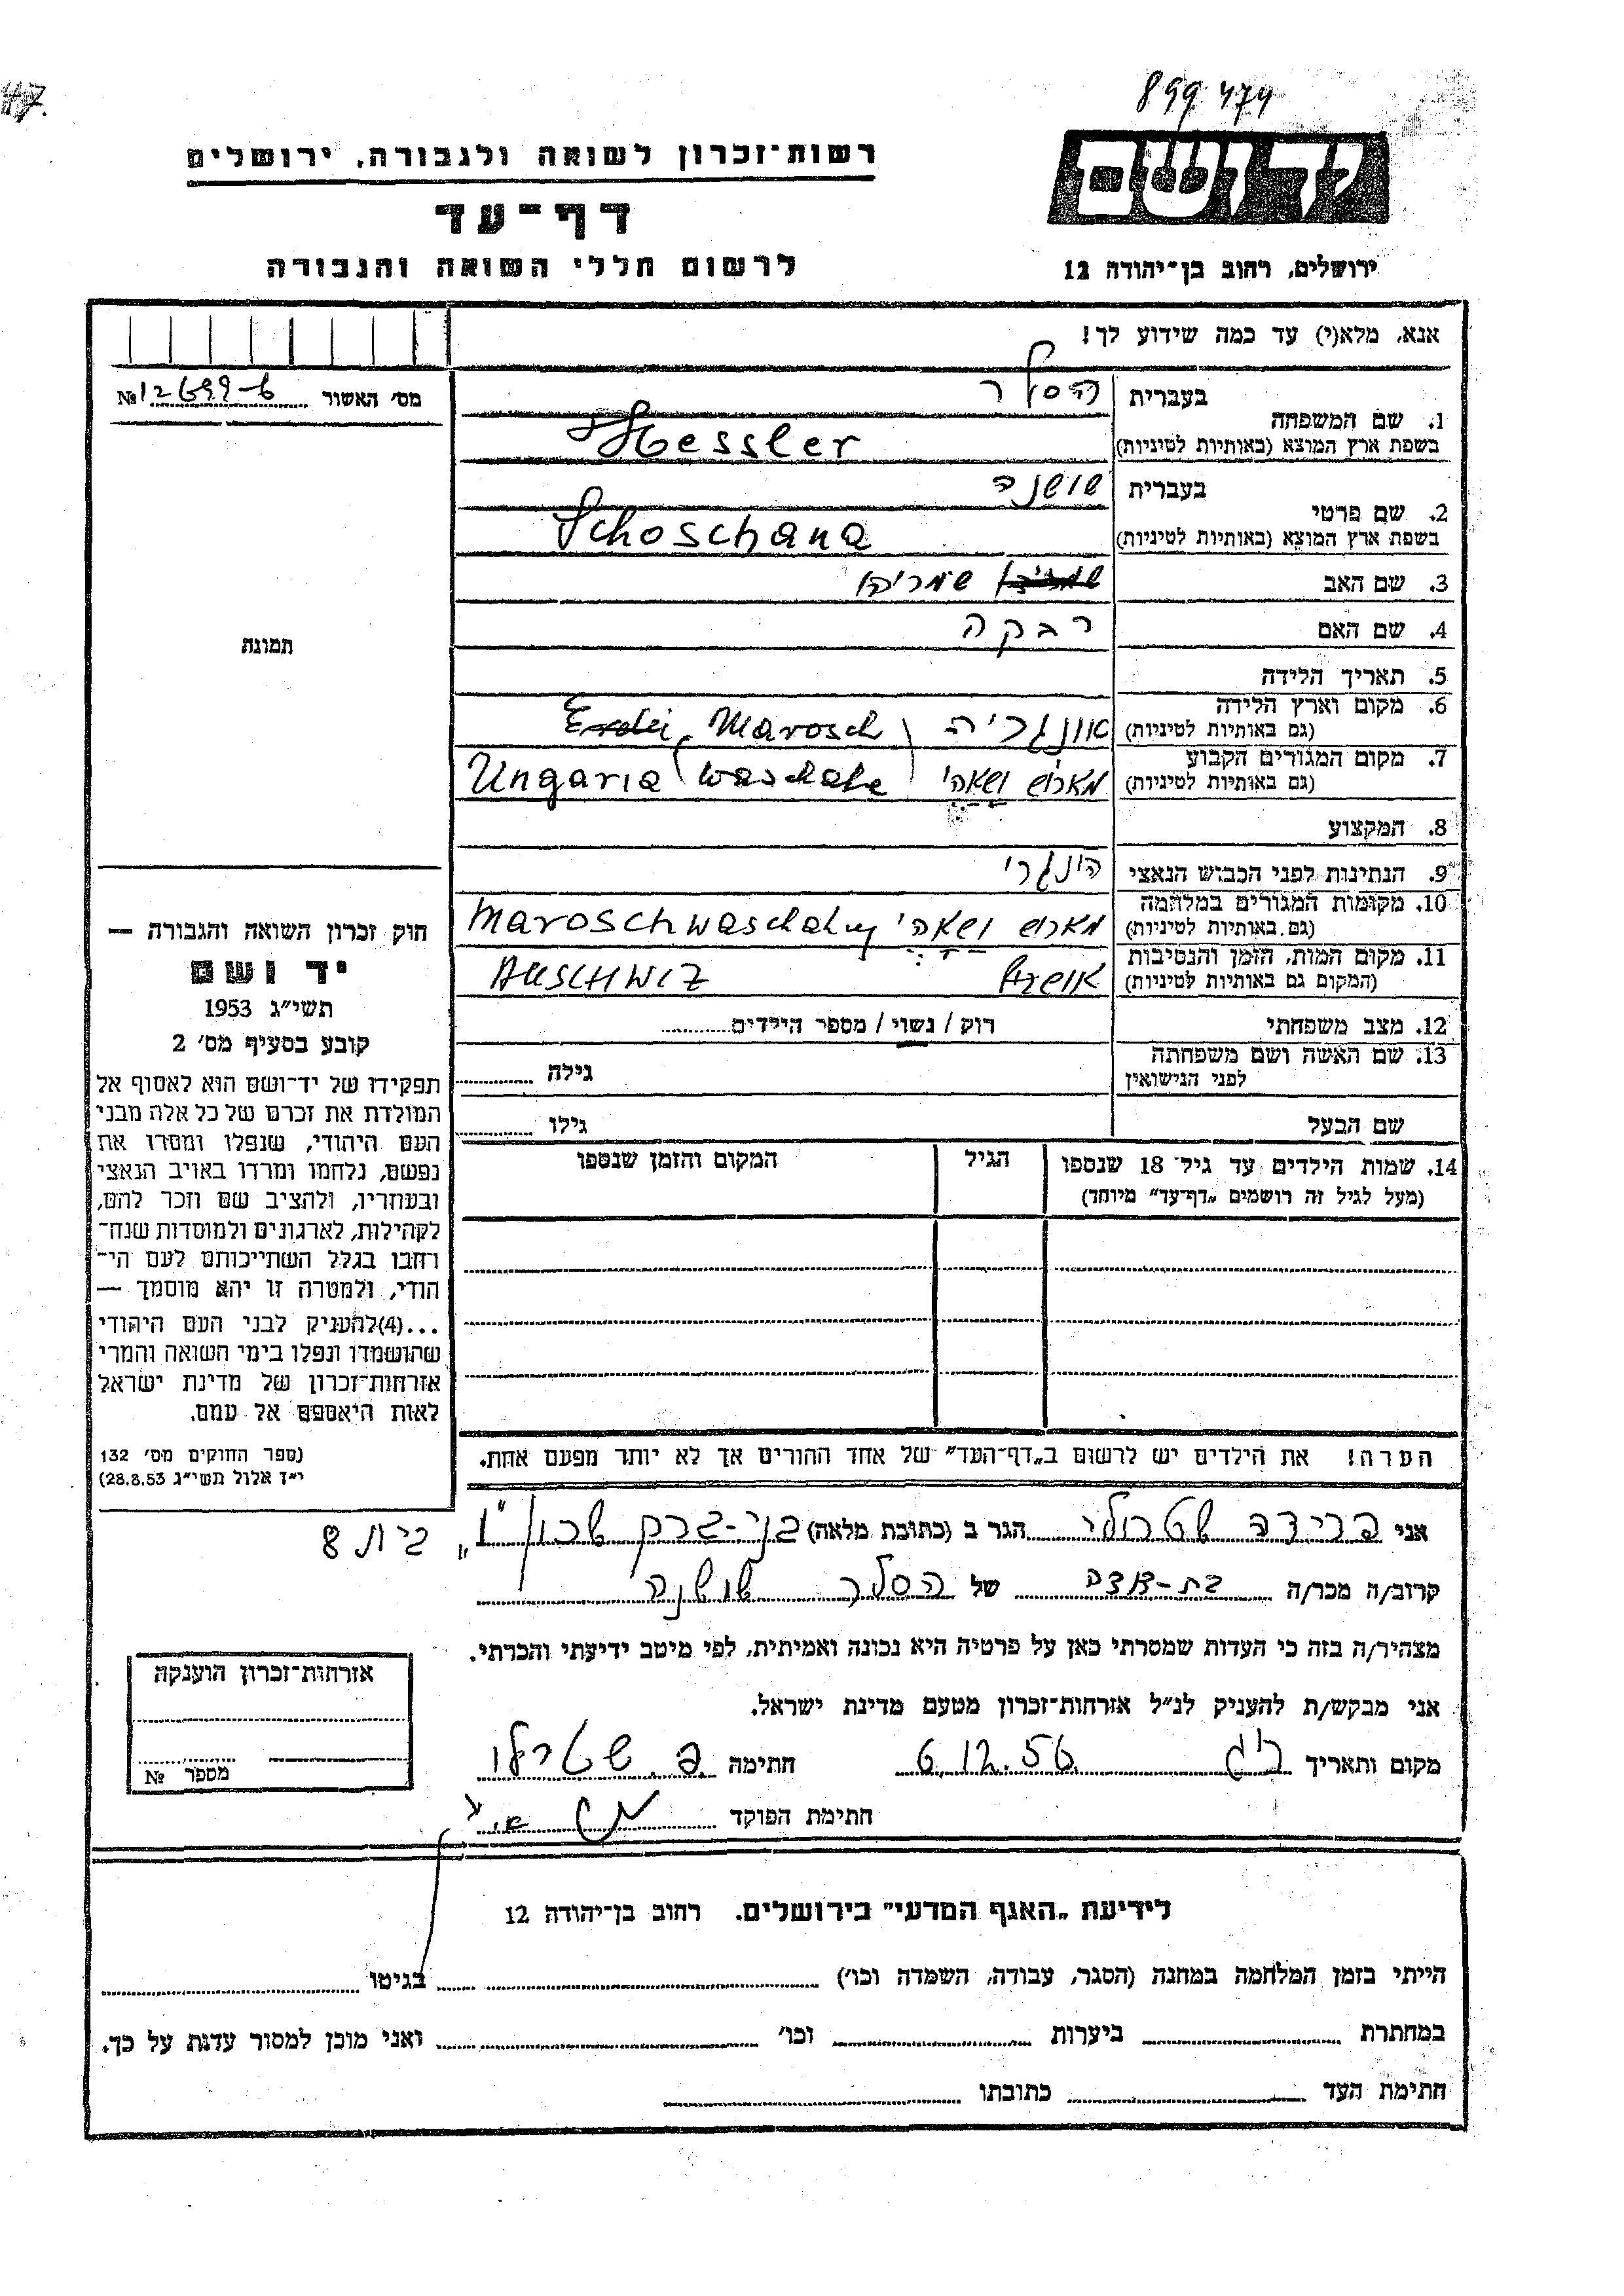 47.
899 474
יד ושם
רשות־זכרון לשואה ולגבורה, ירושלים
דף־עד
לרשום חללי השואה והגבורה
ירושלים, רחוב בן־יהודה 12
אנא, מלא(י) עד כמה שידוע לך!
מס׳ האשור №
1. שם המשפחה
בעברית הסלר
בשפת ארץ המוצא (באותיות לטיניות) Hessler
2. שם פרטי
בעברית שושנה
בשפת ארץ המוצא (באותיות לטיניות) Schoschana
3. שם האב שמריהו
4. שם האם רבקה
תמונה
5. תאריך הלידה
6. מקום וארץ הלידה
(גם באותיות לטיניות) אונגריה Marosch
7. מקום המגורים הקבוע
(גם באותיות לטיניות) מארוש ושאהי Ungaria
8. המקצוע
9. הנתינות לפני הכבוש הנאצי הונגרי
10. מקומות המגורים במלחמה
(גם באותיות לטיניות) מארוש ושאהי
11. מקום המות, הזמן והנסיבות
(המקום גם באותיות לטיניות) AUSCHWIZ
12. מצב משפחתי רוק / נשוי / מספר הילדים
13. שם האשה ושם משפחתה
לפני הנישואין גילה
שם הבעל גילו
14. שמות הילדים עד גיל 18 שנספו
(מעל לגיל זה רושמים „דף־עד״ מיוחד)
הגיל
המקום והזמן שנספו
הערה! את הילדים יש לרשום ב„דף־העד״ של אחד ההורים אך לא יותר מפעם אחת.
חוק זכרון השואה והגבורה —
יד ושם
תשי״ג 1953
קובע בסעיף מס׳ 2
תפקידו של יד־ושם הוא לאסוף אל
המולדת את זכרם של כל אלה מבני
העם היהודי, שנפלו ומסרו את
נפשם, נלחמו ומרדו באויב הנאצי
ובעוזריו, ולהציב שם וזכר להם,
לקהילות, לארגונים ולמוסדות שנח־
רחבו בגלל השתייכותם לעם הי־
הודי, ולמטרה זו יהא מוסמך —
...(4)להעניק לבני העם היהודי
שהושמדו ונפלו בימי השואה והמרי
אזרחות־זכרון של מדינת ישראל
לאות היאספם אל עמם.
(ספר החוקים מס׳ 132
י״ז אלול תשי״ג 28.8.53)
אני פרידה הגר ב (כתובת מלאה) בני-ברק שכון "ו" בית 8
קרוב/ה מכר/ה בת-דודה של הסלר שושנה
מצהיר/ה בזה כי העדות שמסרתי כאן על פרטיה היא נכונה ואמיתית, לפי מיטב ידיעתי והכרתי.
אני מבקש/ת להעניק לנ״ל אזרחות־זכרון מטעם מדינת ישראל.
מקום ותאריך 6.12.56 חתימה
חתימת הפוקד
אזרחות־זכרון הוענקה
מספר №
לידיעת „האגף המדעי״ בירושלים. רחוב בן־יהודה 12
הייתי בזמן המלחמה במחנה (הסגר, עבודה, השמדה וכו׳) בגיטו
במחתרת ביערות וכו׳ ואני מוכן למסור עדות על כך.
חתימת העד כתובתו